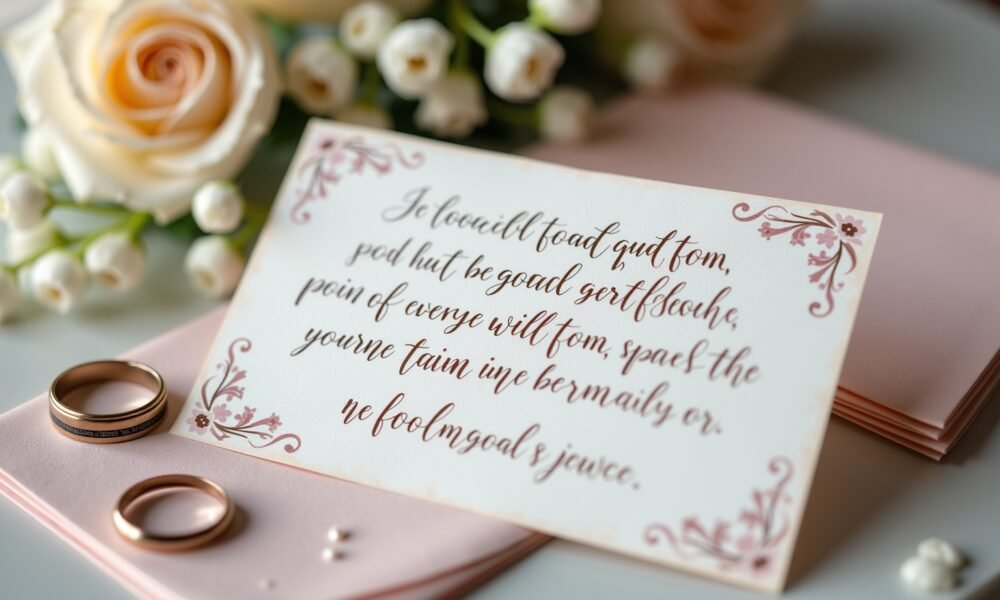 Je loocibll foad qud fom,
pod hut be goad gert fsloche,
poin of everye will fom, spaes the
yourne taim ine bermaily or.
ne foolmgoal s jewce.